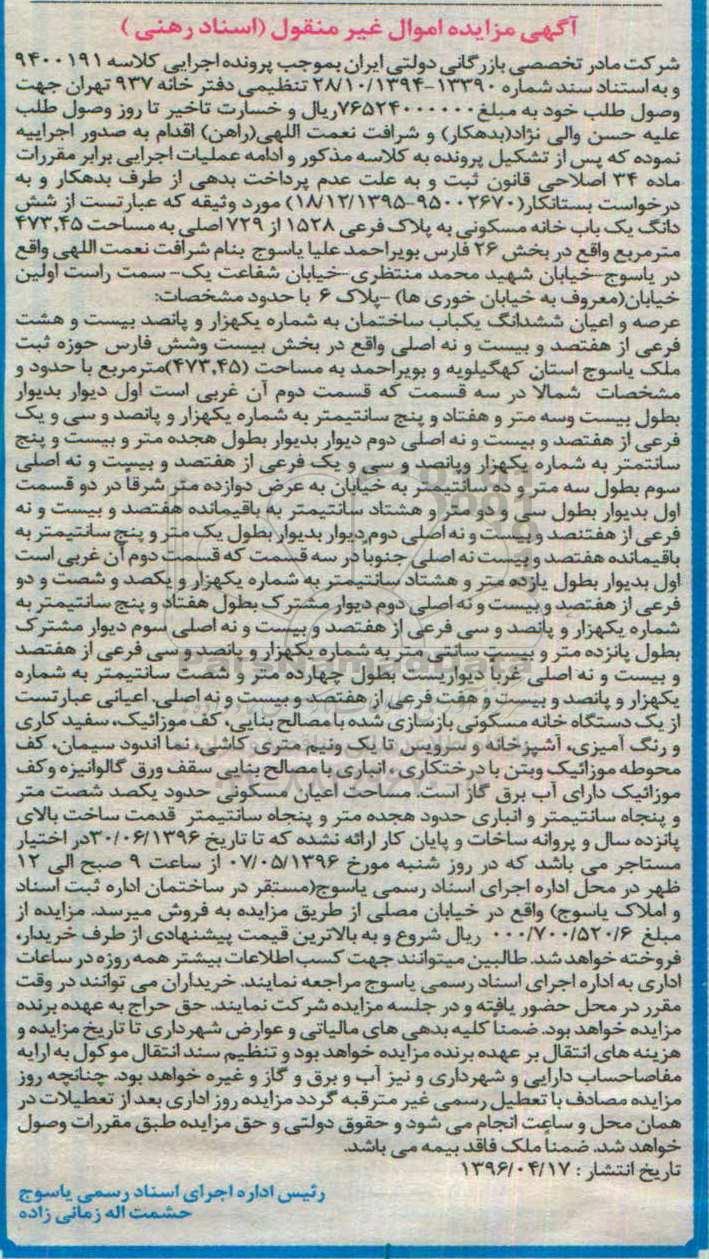 آگهی مزایده اموال غیر منقول (اسناد رهنی )
شرکت مادر تخصصی بازرگانی دولتی ایران بموجب پرونده اجرایی کلاسه ۹۴۰۰۱۹۱
و به استناد سند شماره ۱۳۳۹۰-۲۸/۱۰/۱۳۹۴ تنظیمی دفتر خانه ۹۳۷ تهران جهت
وصول طلب خود به مبلغ ۷۶۵۲۴۰۰۰۰۰۰ریال و خسارت تاخیر تا روز وصول طلب
علیه حسن والی نژاد(بدهکار) و شرافت نعمت اللهی(راهن) اقدام به صدور اجراییه
نموده که پس از تشکیل پرونده به کلاسه مذکور و ادامه عملیات اجرایی برابر مقررات
ماده ۳۴ اصلاحی قانون ثبت و به علت عدم پرداخت بدهی از طرف بدهکار و به
درخواست بستانکار(۹۵۰۰۲۶۷۰-۱۸/۱۲/۱۳۹۵) مورد وثیقه که عبارتست از شش
دانگ یک باب خانه مسکونی به پلاک فرعی ۱۵۲۸ از ۷۲۹ اصلی به مساحت ۴۷۳,۴۵
مترمربع واقع در بخش ۲۶ فارس بویراحمد علیا یاسوج بنام شرافت نعمت اللهی واقع
در یاسوج-خیابان شهید محمد منتظری-خیابان شفاعت یک- سمت راست اولین
خیابان(معروف به خیابان خوری ها) -پلاک ۶ با حدود مشخصات:
عرصه و اعیان ششدانگ یکباب ساختمان به شماره یکهزار و پانصد بیست و هشت
فرعی از هفتصد و بیست و نه اصلی واقع در بخش بیست وشش فارس حوزه ثبت
ملک یاسوج استان کهگیلویه و بویراحمد به مساحت (۴۷۳,۴۵)مترمربع با حدود و
مشخصات شمالاً در سه قسمت که قسمت دوم آن غربی است اول دیوار بدیوار
بطول بیست وسه متر و هفتاد و پنج سانتیمتر به شماره یکهزار و پانصد و سی و یک
فرعی از هفتصد و بیست و نه اصلی دوم دیوار بدیوار بطول هجده متر و بیست و پنج
سانتمتر به شماره یکهزار وپانصد و سی و یک فرعی از هفتصد و بیست و نه اصلی
سوم بطول سه متر و ده سانتیمتر به خیابان به عرض دوازده متر شرقاً در دو قسمت
اول بدیوار بطول سی و دو متر و هشتاد سانتیمتر به باقیمانده هفتصد و بیست و نه
فرعی از هفتنصد و بیست و نه اصلی دوم دیوار بدیوار بطول یک متر و پنج سانتیمتر به
باقیمانده هفتصد و بیست نه اصلی جنوباً در سه قسمت که قسمت دوم آن غربی است
اول بدیوار بطول یازده متر و هشتاد سانتیمتر به شماره یکهزار و یکصد و شصت و دو
فرعی از هفتصد و بیست و نه اصلی دوم دیوار مشترک بطول هفتاد و پنج سانتیمتر به
شماره یکهزار و پانصد و سی فرعی از هفتصد و بیست و نه اصلی سوم دیوار مشترک
بطول پانزده متر و بیست سانتی متر به شماره یکهزار و پانصد و سی فرعی از هفتصد
و بیست و نه اصلی غرباً دیواریست بطول چهارده متر و شصت سانتیمتر به شماره
یکهزار و پانصد و بیست و هفت فرعی از هفتصد و بیست و نه اصلی. اعیانی عبارتست
از یک دستگاه خانه مسکونی بازسازی شده با مصالح بنایی، کف موزائیک، سفید کاری
و رنگ آمیزی، آشپزخانه و سرویس تا یک ونیم متری کاشی، نما اندود سیمان، کف
محوطه موزائیک وبتن با درختکاری، انباری با مصالح بنایی سقف ورق گالوانیزه وکف
موزائیک دارای آب برق گاز است. مساحت اعیان مسکونی حدود یکصد شصت متر
و پنجاه سانتیمتر و انباری حدود هجده متر و پنجاه سانتیمتر قدمت ساخت بالای
پانزده سال و پروانه ساخات و پایان کار ارائه نشده که تا تاریخ ۳۰/۰۶/۱۳۹۶در اختیار
مستاجر می باشد که در روز شنبه مورخ ۰۷/۰۵/۱۳۹۶ از ساعت ۹ صبح الی ۱۲
ظهر در محل اداره اجرای اسناد رسمی یاسوج(مستقر در ساختمان اداره ثبت اسناد
و املاک یاسوج) واقع در خیابان مصلی از طریق مزایده به فروش میرسد. مزایده از
مبلغ ۰۰۰/۷۰۰/۵۲۰/۶ ریال شروع و به بالاترین قیمت پیشنهادی از طرف خریدار،
فروخته خواهد شد. طالبین میتوانند جهت کسب اطلاعات بیشتر همه روزه در ساعات
اداری به اداره اجرای اسناد رسمی یاسوج مراجعه نمایند. خریداران می توانند در وقت
مقرر در محل حضور یافته و در جلسه مزایده شرکت نمایند. حق حراج به عهده برنده
مزایده خواهد بود. ضمناً کلیه بدهی های مالیاتی و عوارض شهرداری تا تاریخ مزایده و
هزینه های انتقال بر عهده برنده مزایده خواهد بود و تنظیم سند انتقال موکول به ارایه
مفاصاحساب دارایی و شهرداری و نیز آب و برق و گاز و غیره خواهد بود. چنانچه روز
مزایده مصادف با تعطیل رسمی غیر مترقبه گردد مزایده روز اداری بعد از تعطیلات در
همان محل و ساعت انجام می شود و حقوق دولتی و حق مزایده طبق مقررات وصول
خواهد شد. ضمناً ملک فاقد بیمه می باشد.
تاریخ انتشار : ۱۳۹۶/۰۴/۱۷
رئیس اداره اجرای اسناد رسمی یاسوج
حشمت اله زمانی زاده
ParsNamadData